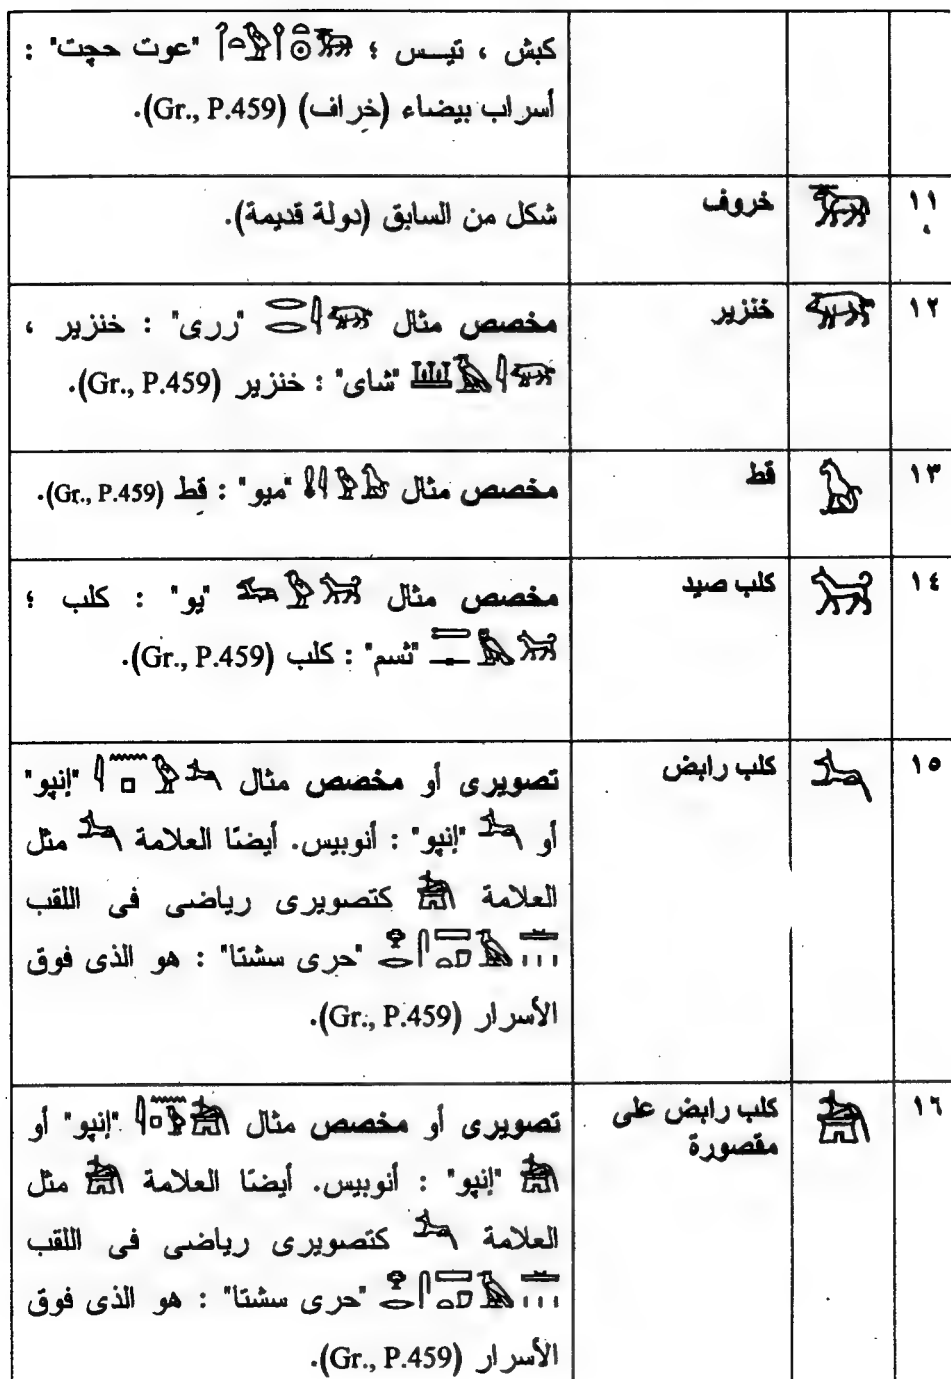 كبش ، تيس ؛ "عوت حجت" :
أسراب بيضاء (خراف) (Gr., P.459).
١١ خروف شكل من السابق (دولة قديمة).
١٢ خنزير مخصص مثال "ررى" : خنزير ،
"شاى" : خنزير (Gr., P.459).
١٣ قط مخصص مثال "ميو" : قط (Gr., P.459).
١٤ كلب صيد مخصص مثال "يو" : كلب ؛
"ثسم" : كلب (Gr., P.459).
١٥ كلب رابض تصويرى أو مخصص مثال "إنپو"
أو "إنپو" : أنوبيس. أيضًا العلامة مثل
العلامة كتصويرى رياضى فى اللقب
"حرى سشتا" : هو الذى فوق
الأسرار (Gr., P.459).
١٦ كلب رابض على
مقصورة
تصويرى أو مخصص مثال "إنپو" أو
"إنپو" : أنوبيس. أيضًا العلامة مثل
العلامة كتصويرى رياضى فى اللقب
"حرى سشتا" : هو الذى فوق
الأسرار (Gr., P.459).